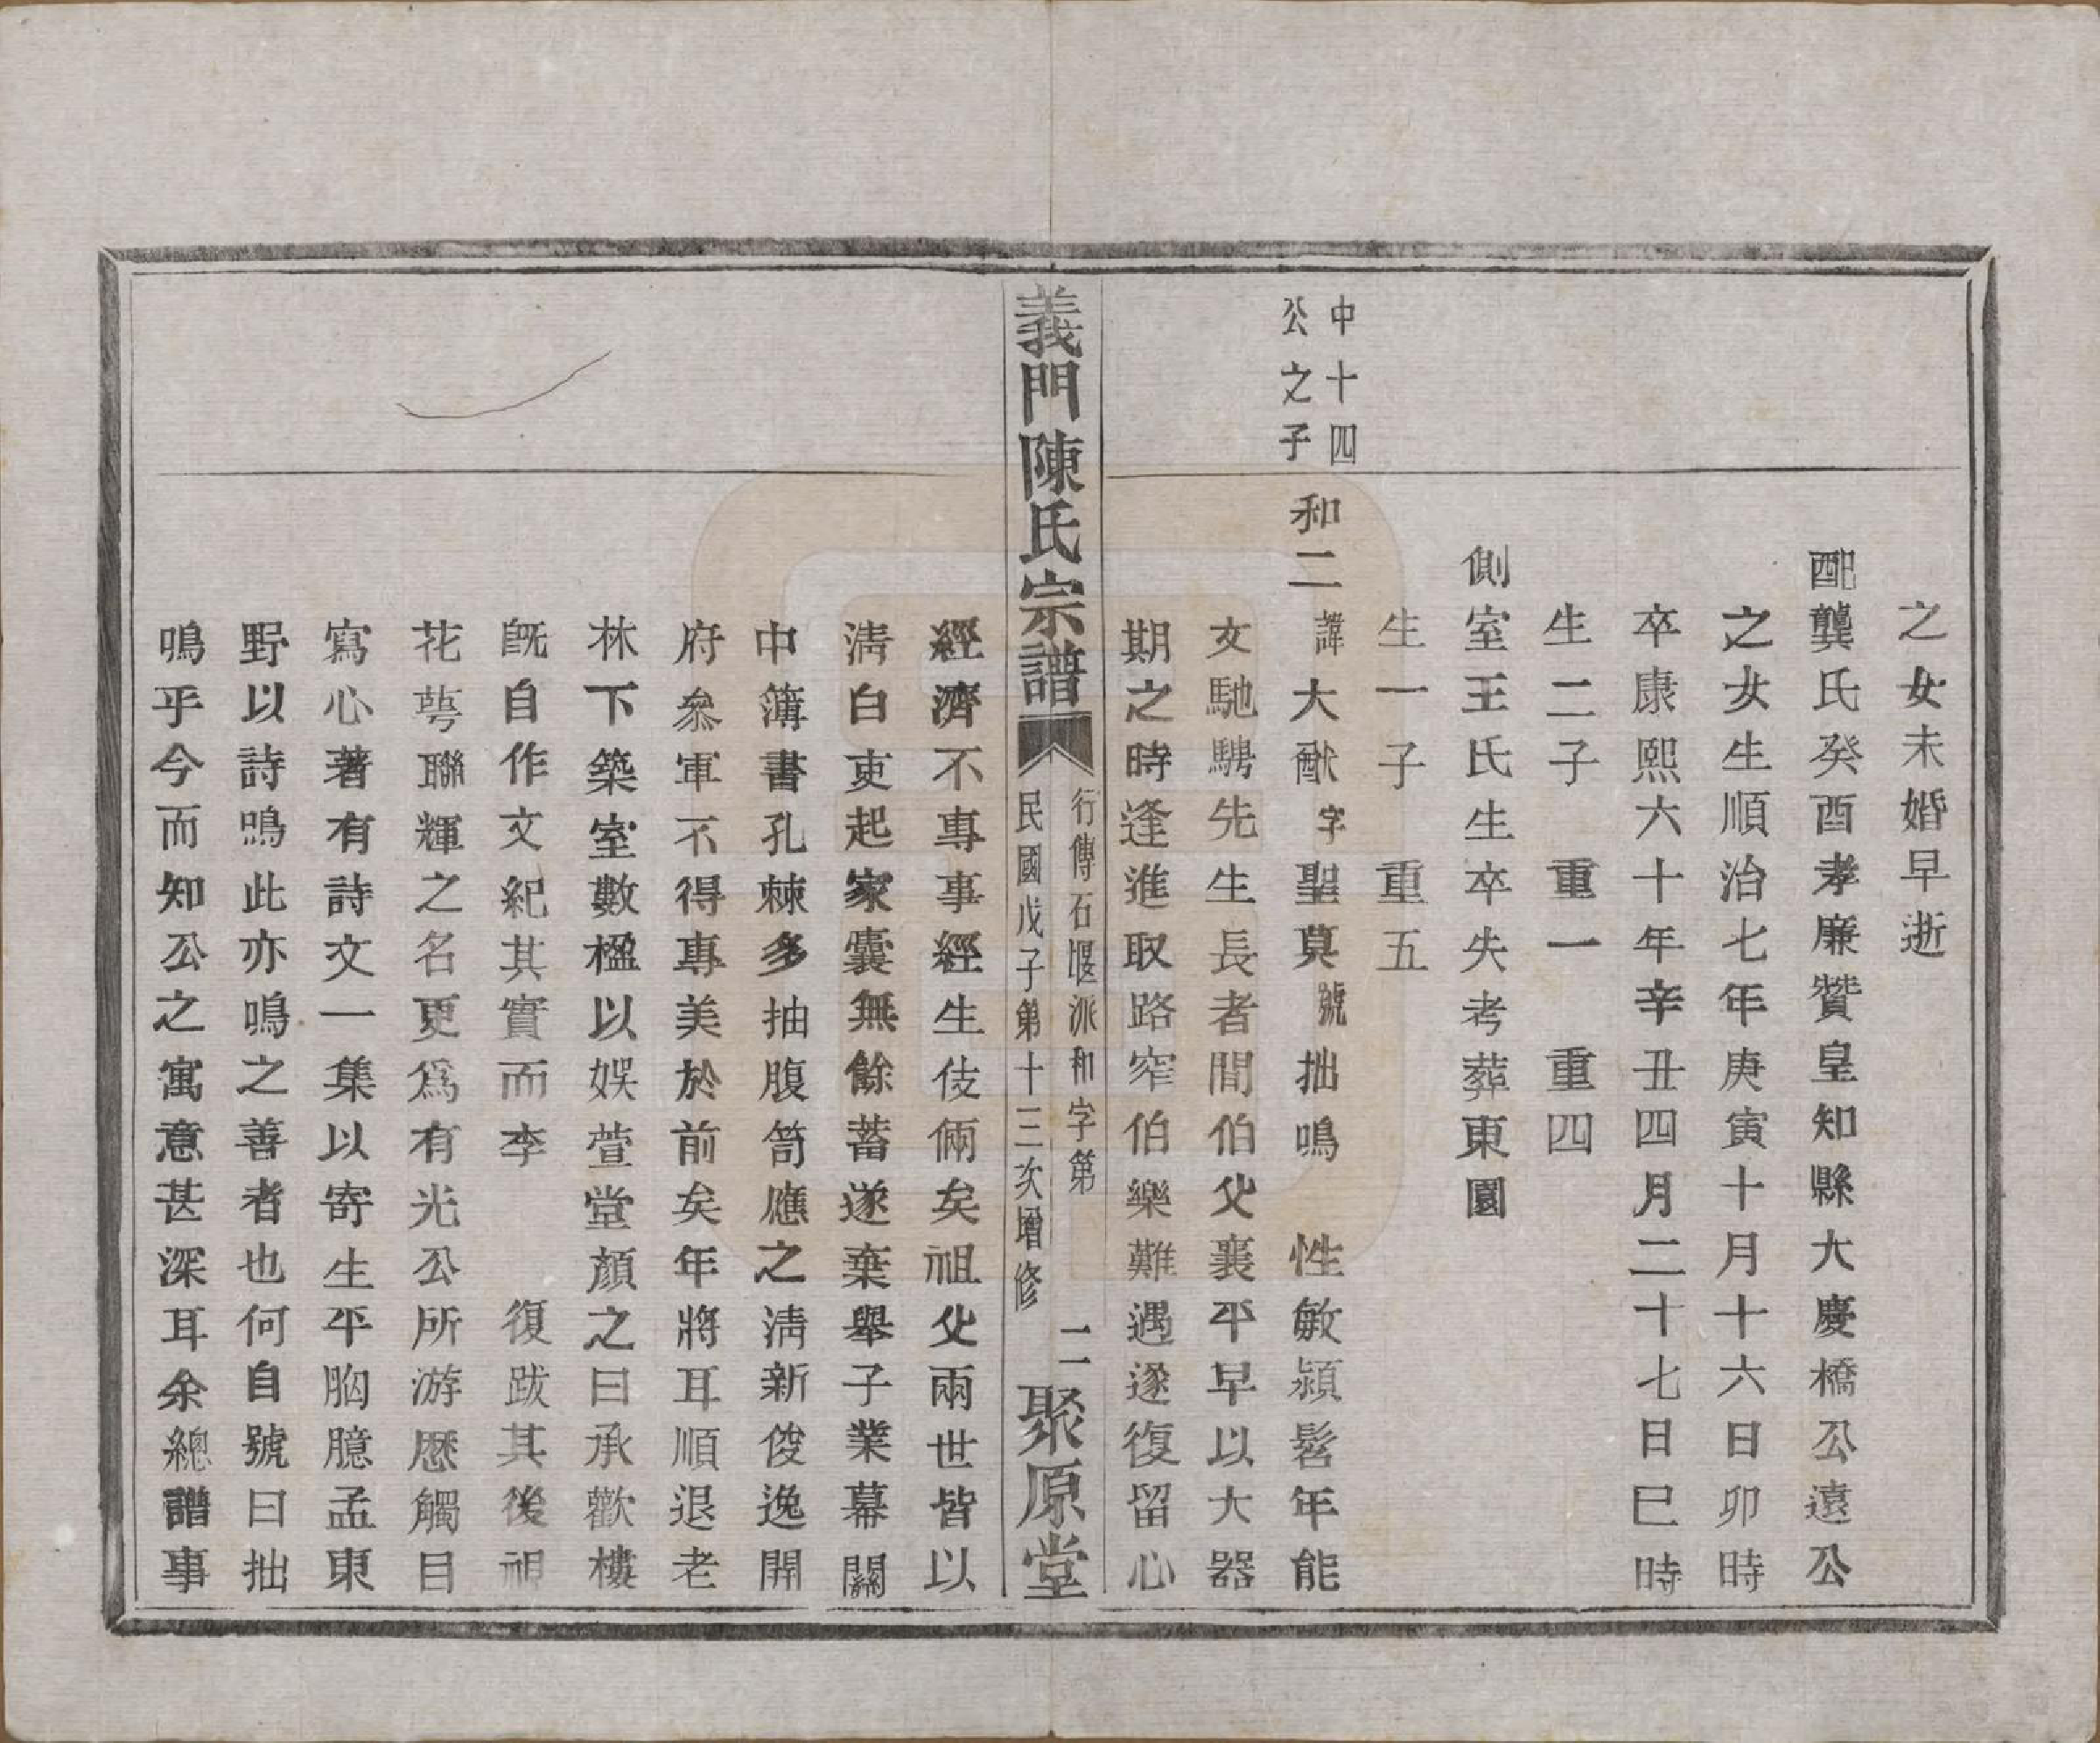 之女未婚早逝
配龔氏癸酉孝廉贊皇知縣大慶橋公遠公
之女生順治七年庚寅十月十六日卯時
卒康熙六十年辛丑四月二十七日巳時
生二子　重一　重四
側室王氏生卒失考葬東園
生一子　重五
中十四
公之子
和二　諱大猷字聖莫號拙鳴　性敏潁髫年能
文馳騁先生長者間伯父襄平早以大器
期之時逢進取路窄伯樂難遇遂復留心
義門陳氏宗譜
行傳石堰派和字第
民國戊子第十三次增修
二
聚原堂
經濟不專事經生伎倆矣祖父兩世皆以
淸白吏起家囊無餘蓄遂棄舉子業幕關
中簿書孔棘多抽腹笥應之淸新俊逸開
府叅軍不得專美於前矣年將耳順退老
林下築室數楹以娛萱堂顏之曰承歡樓
旣自作文紀其實而李　復跋其後視
花萼聯輝之名更爲有光公所游歷觸目
寫心著有詩文一集以寄生平胸臆孟東
野以詩鳴此亦鳴之善者也何自號曰拙
鳴乎今而知公之寓意甚深耳余總譜事